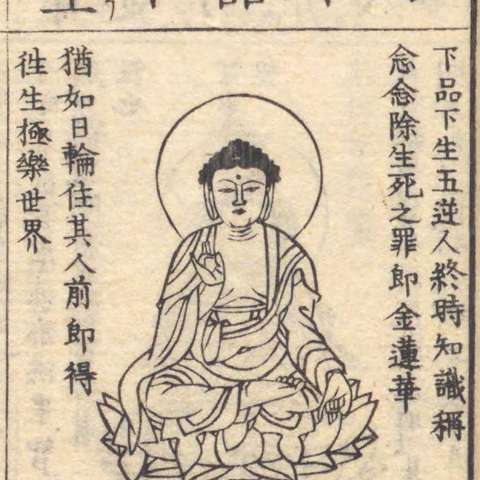 下品下生五逆人終時知識稱
念念除生死之罪即金蓮華
猶如日輪住其人前即得
徃生極樂世界